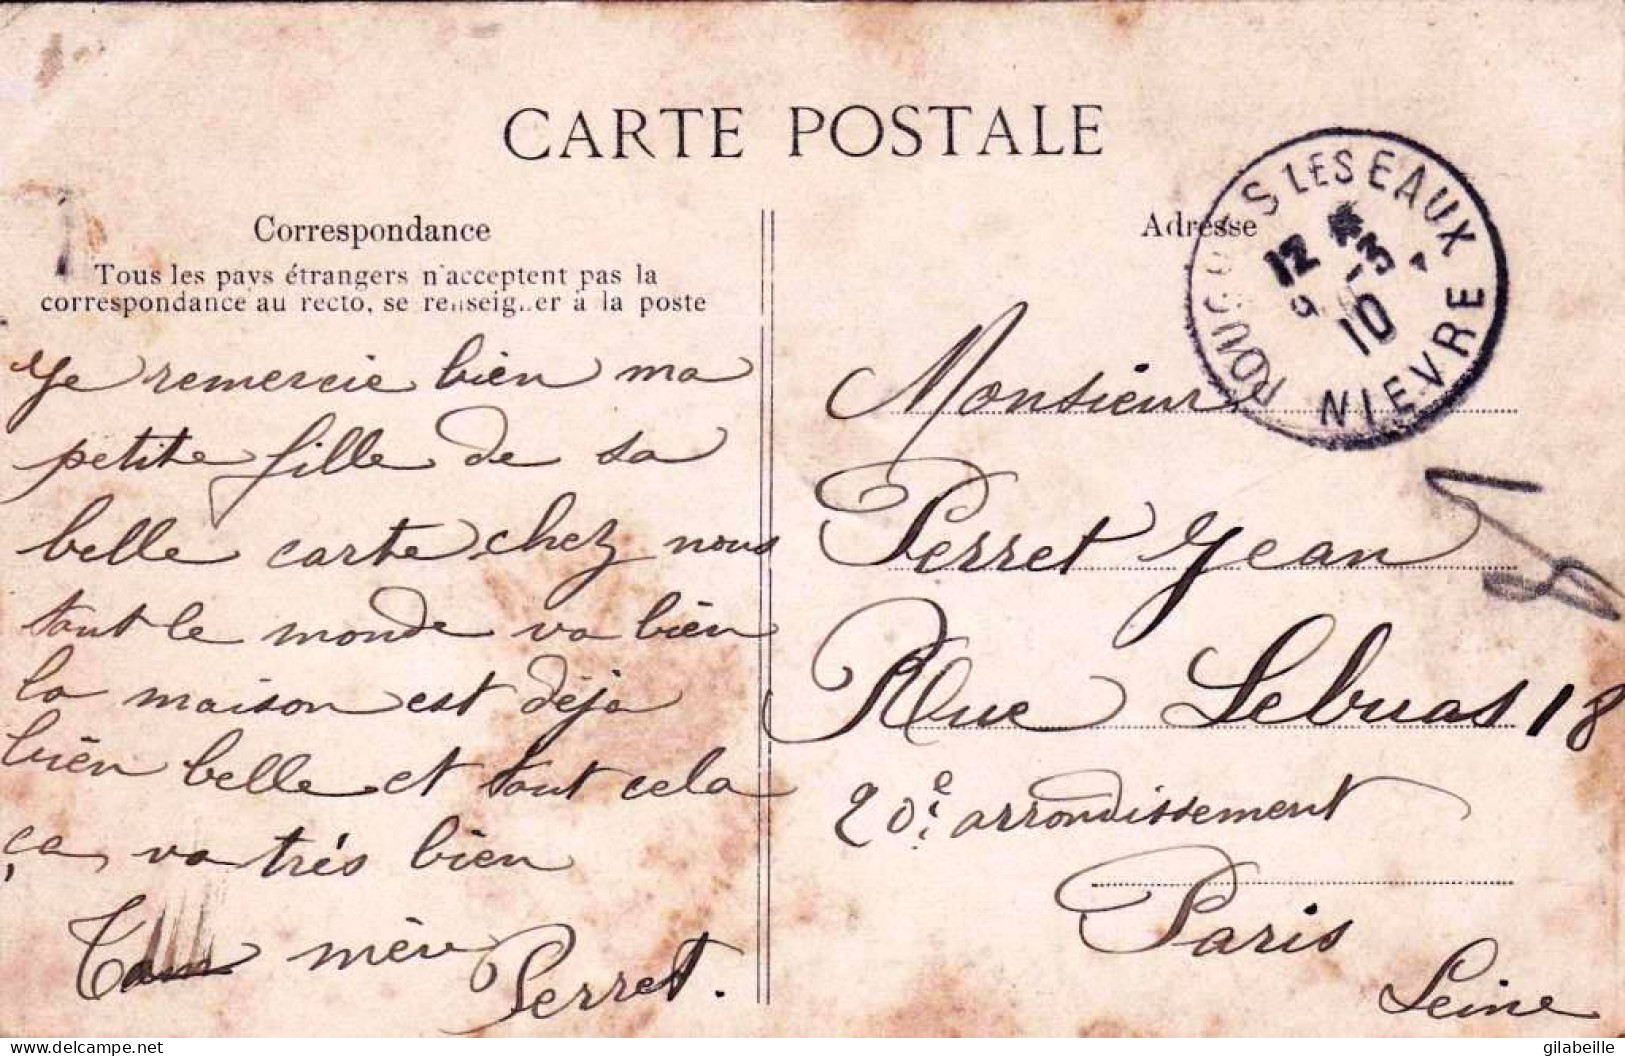 CARTE POSTALE
Correspondance
Tous les pays étrangers n'acceptent pas la
correspondance au recto, se renseigner à la poste
Je remercie bien ma
petite fille de sa
belle carte chez nous
tout le monde va bien
la maison est déja
bien belle et tout cela
ça va trés bien
mère
Perret.
Adresse
POUGUES LES EAUX
NIEVRE
12
9 -3
10
Monsieur
Perret Jean
Rue Lebuas 18
20e arrondissement
Paris
Seine
delcampe.net
gilabeille